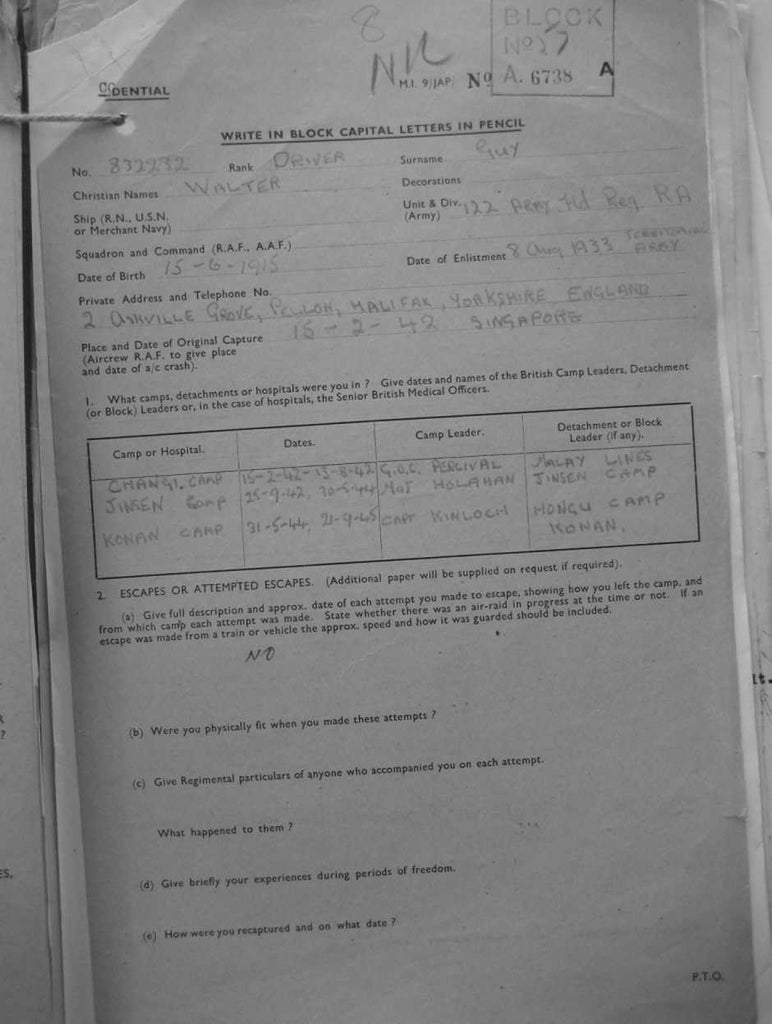 8
BLOCK
No 27
NIL
M.I. 9/JAP. No A. 6738 A
CONFIDENTIAL
WRITE IN BLOCK CAPITAL LETTERS IN PENCIL
No. 832232 Rank DRIVER Surname GUY
Christian Names WALTER Decorations
Ship (R.N., U.S.N. or Merchant Navy) Unit & Div. (Army) 122 ARMY Fld Reg RA
Squadron and Command (R.A.F., A.A.F.)
Date of Birth 15-6-1915 Date of Enlistment 8 Aug 1933 TERRITORIAL ARMY
Private Address and Telephone No.
2 ASHVILLE GROVE, PELLON, HALIFAX, YORKSHIRE ENGLAND
Place and Date of Original Capture 15-2-42 SINGAPORE
(Aircrew R.A.F. to give place
and date of a/c crash).
1. What camps, detachments or hospitals were you in ? Give dates and names of the British Camp Leaders, Detachment
(or Block) Leaders or, in the case of hospitals, the Senior British Medical Officers.
Camp or Hospital. Dates. Camp Leader. Detachment or Block Leader (if any).
CHANGI, CAMP 15-2-42-15-8-42 G.O.C. PERCIVAL MALAY LINES
JINSEN CAMP 25-9-42, 30-5-44 MAJ HOLAHAN JINSEN CAMP
KONAN CAMP 31-5-44, 21-9-45 CAPT KINLOCH HONGU CAMP
KONAN.
2. ESCAPES OR ATTEMPTED ESCAPES. (Additional paper will be supplied on request if required).
(a) Give full description and approx. date of each attempt you made to escape, showing how you left the camp, and
from which camp each attempt was made. State whether there was an air-raid in progress at the time or not. If an
escape was made from a train or vehicle the approx. speed and how it was guarded should be included.
NO
(b) Were you physically fit when you made these attempts ?
(c) Give Regimental particulars of anyone who accompanied you on each attempt.
What happened to them ?
(d) Give briefly your experiences during periods of freedom.
(e) How were you recaptured and on what date ?
P.T.O.